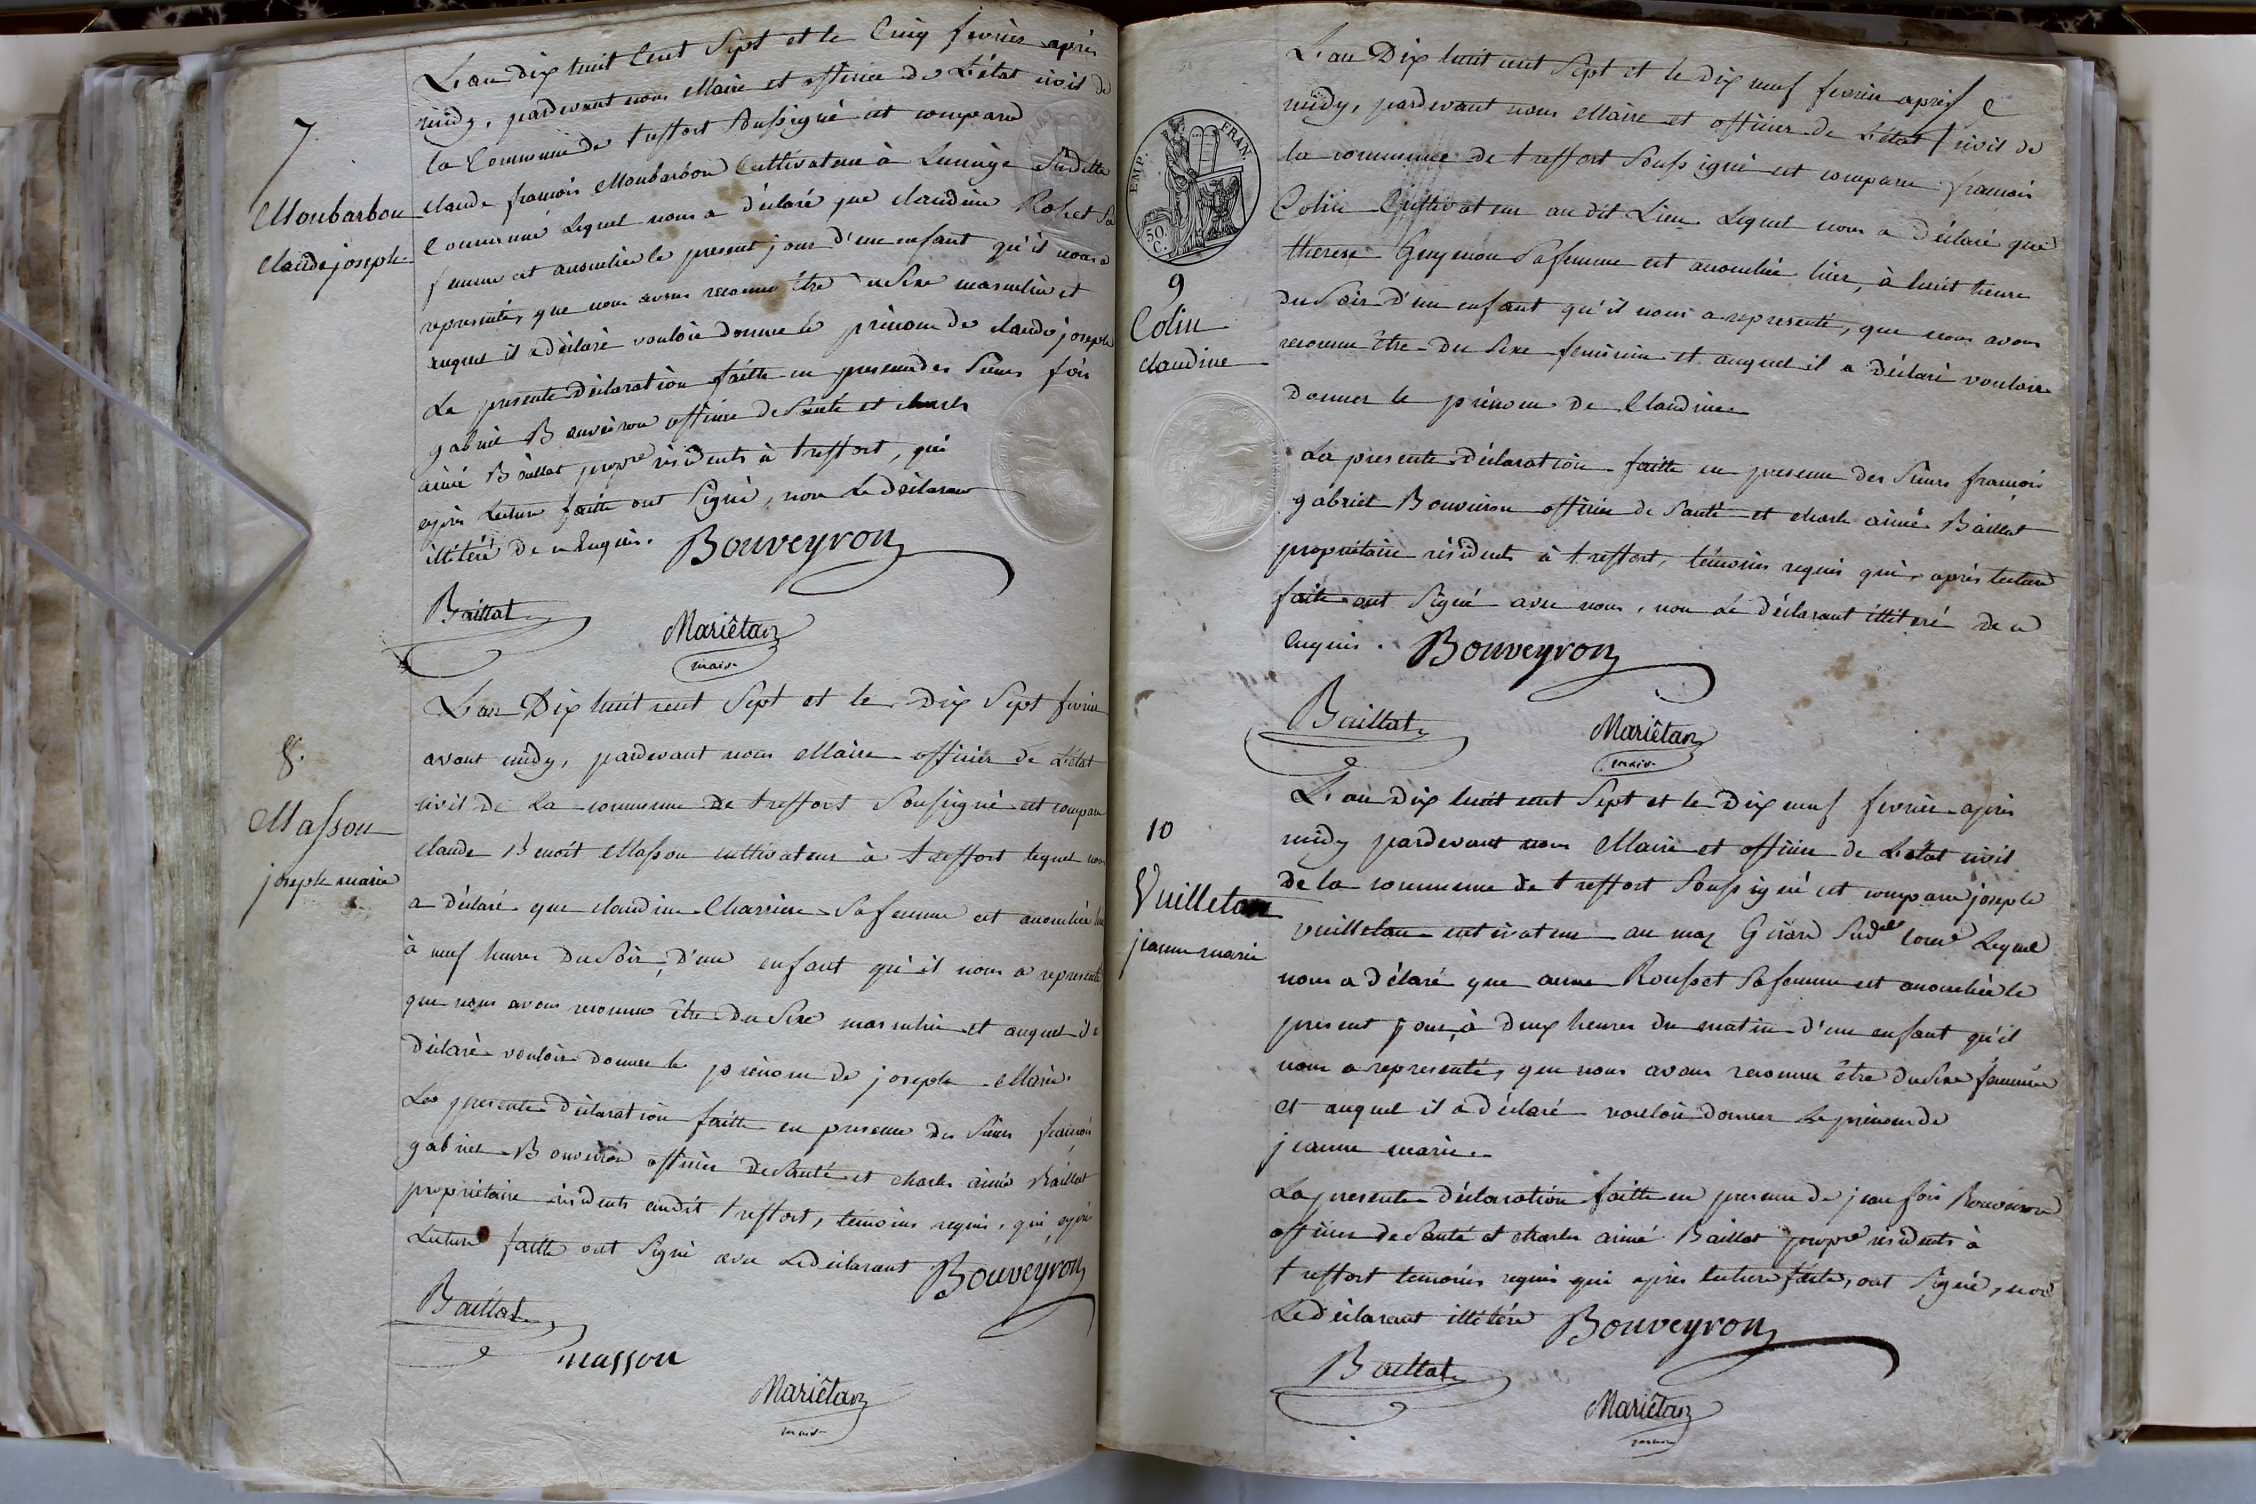 7
Monbarbon
claude joseph
L'an dix huit Cent Sept et le Cinq fevrier après
midy, pardevant nous Maire et officier de L'état civil de
la Commune de treffort Soussigné est comparu
claude françois Monbarbon Cultivateur à Lucinge Sudette
Commune Lequel nous a déclaré que claudine Sa
femme est accouchée le present jour d'un enfant qu'il nous a
representé, que nous avons reconnu être du Sexe masculin et
auquel il a déclaré vouloir donner le prénom de claude joseph
La presente déclaration faitte en presence des Sieurs fois
gabriel Bouveiron officier de Santé et charle
aimé Baillat propre résidents à treffort, qui
après Lecture faitte ont Signé, non Le déclarant
illitéré de ce Enquis. Bouveyron
Baillat
Mariêtan
maire
8.
Masson
joseph marie
L'an Dix huit cent Sept et le Dix Sept fevrier
avant midy, pardevant nous Maire officier de L'état
civil de La commune de treffort Soussigné est comparu
claude Benoit Masson cultivateur à treffort lequel nous
a déclaré que claudine Charriere Sa femme est accouchée
à neuf heures du Soir, d'un enfant qu'il nous a representé
que nous avons reconnu être du Sexe masculin et auquel il a
déclaré vouloir donner le prénom de joseph Marie.
La presente déclaration faitte en presence des Sieurs françois
gabriel Bouveiron officier de Santé et charles aimé Baillat
propriétaire résidents audit treffort, témoins requis, qui après
Lecture faitte ont Signé avec Le déclarant Bouveyron
Baillat
masson
Mariêtan
maire
EMP. FRAN.
50 C.
9
Colin
claudine
L'an Dix huit cent Sept et le dix neuf fevrier après
midy, pardevant nous Maire et officier de L'état civil de
la commune de treffort Soussigné est comparu françois
Colin Cultivateur audit Lieu Lequel nous a déclaré que
therese Guyenon Sa femme est accouchée hier, à huit heure
du Soir d'un enfant qu'il nous a representé, que nous avons
reconnu être du Sexe feminin et auquel il a déclaré vouloir
donner le prénom de Claudine
La presente déclaration faitte en presence des Sieurs françois
gabriel Bouveiron officier de Santé et charle aimé Baillat
propriétaire résidents à treffort, témoins requis qui, après lecture
faite ont Signé avec nous, non Le déclarant illitéré de ce
Enquis. Bouveyron
Baillat
Mariêtan
maire
10
Vuilletan
jeanne marie
L'an dix huit cent Sept et le Dix neuf fevrier après
midy pardevant nous Maire et officier de L'état civil
de la commune de treffort Soussigné est comparu joseph
vuilletan cultivateur au maz Girard Sudte comne Lequel
nous a déclaré que anne Rousset Sa femme est accouchée le
present jour, à deux heures du matin d'un enfant qu'il
nous a representé, que nous avons reconnu être du Sexe feminin
et auquel il a déclaré vouloir donner Le prénom de
jeanne marie.
La presente déclaration faitte en presence de jean fois Bouveiron
officier de Santé et charles aimé Baillat propre résidents à
treffort temoins requis qui après lecture faite, ont Signé, non
Le déclarant illitéré Bouveyron
Baillat
Mariêtan
maire